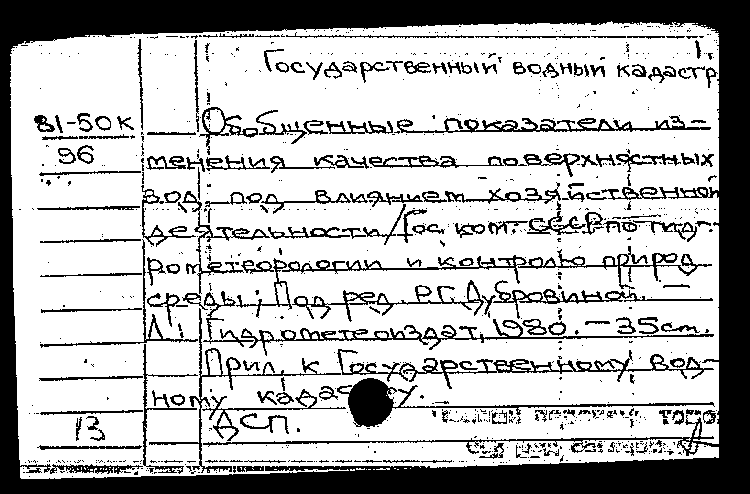 1.
Государственный водный кадастр
81-50К Обобщенные показатели из-
96 менения качества поверхностных
вод под влиянием хозяйственной
деятельности / Гос. ком. СССР по гид-
рометеорологии и контролю природ.
среды; Под ред. Р.Г. Дубровиной. —
Л.: Гидрометеоиздат, 1980. — 35 см.
Прил. к Государственному вод-
ному кадастру.
13 ДСП.